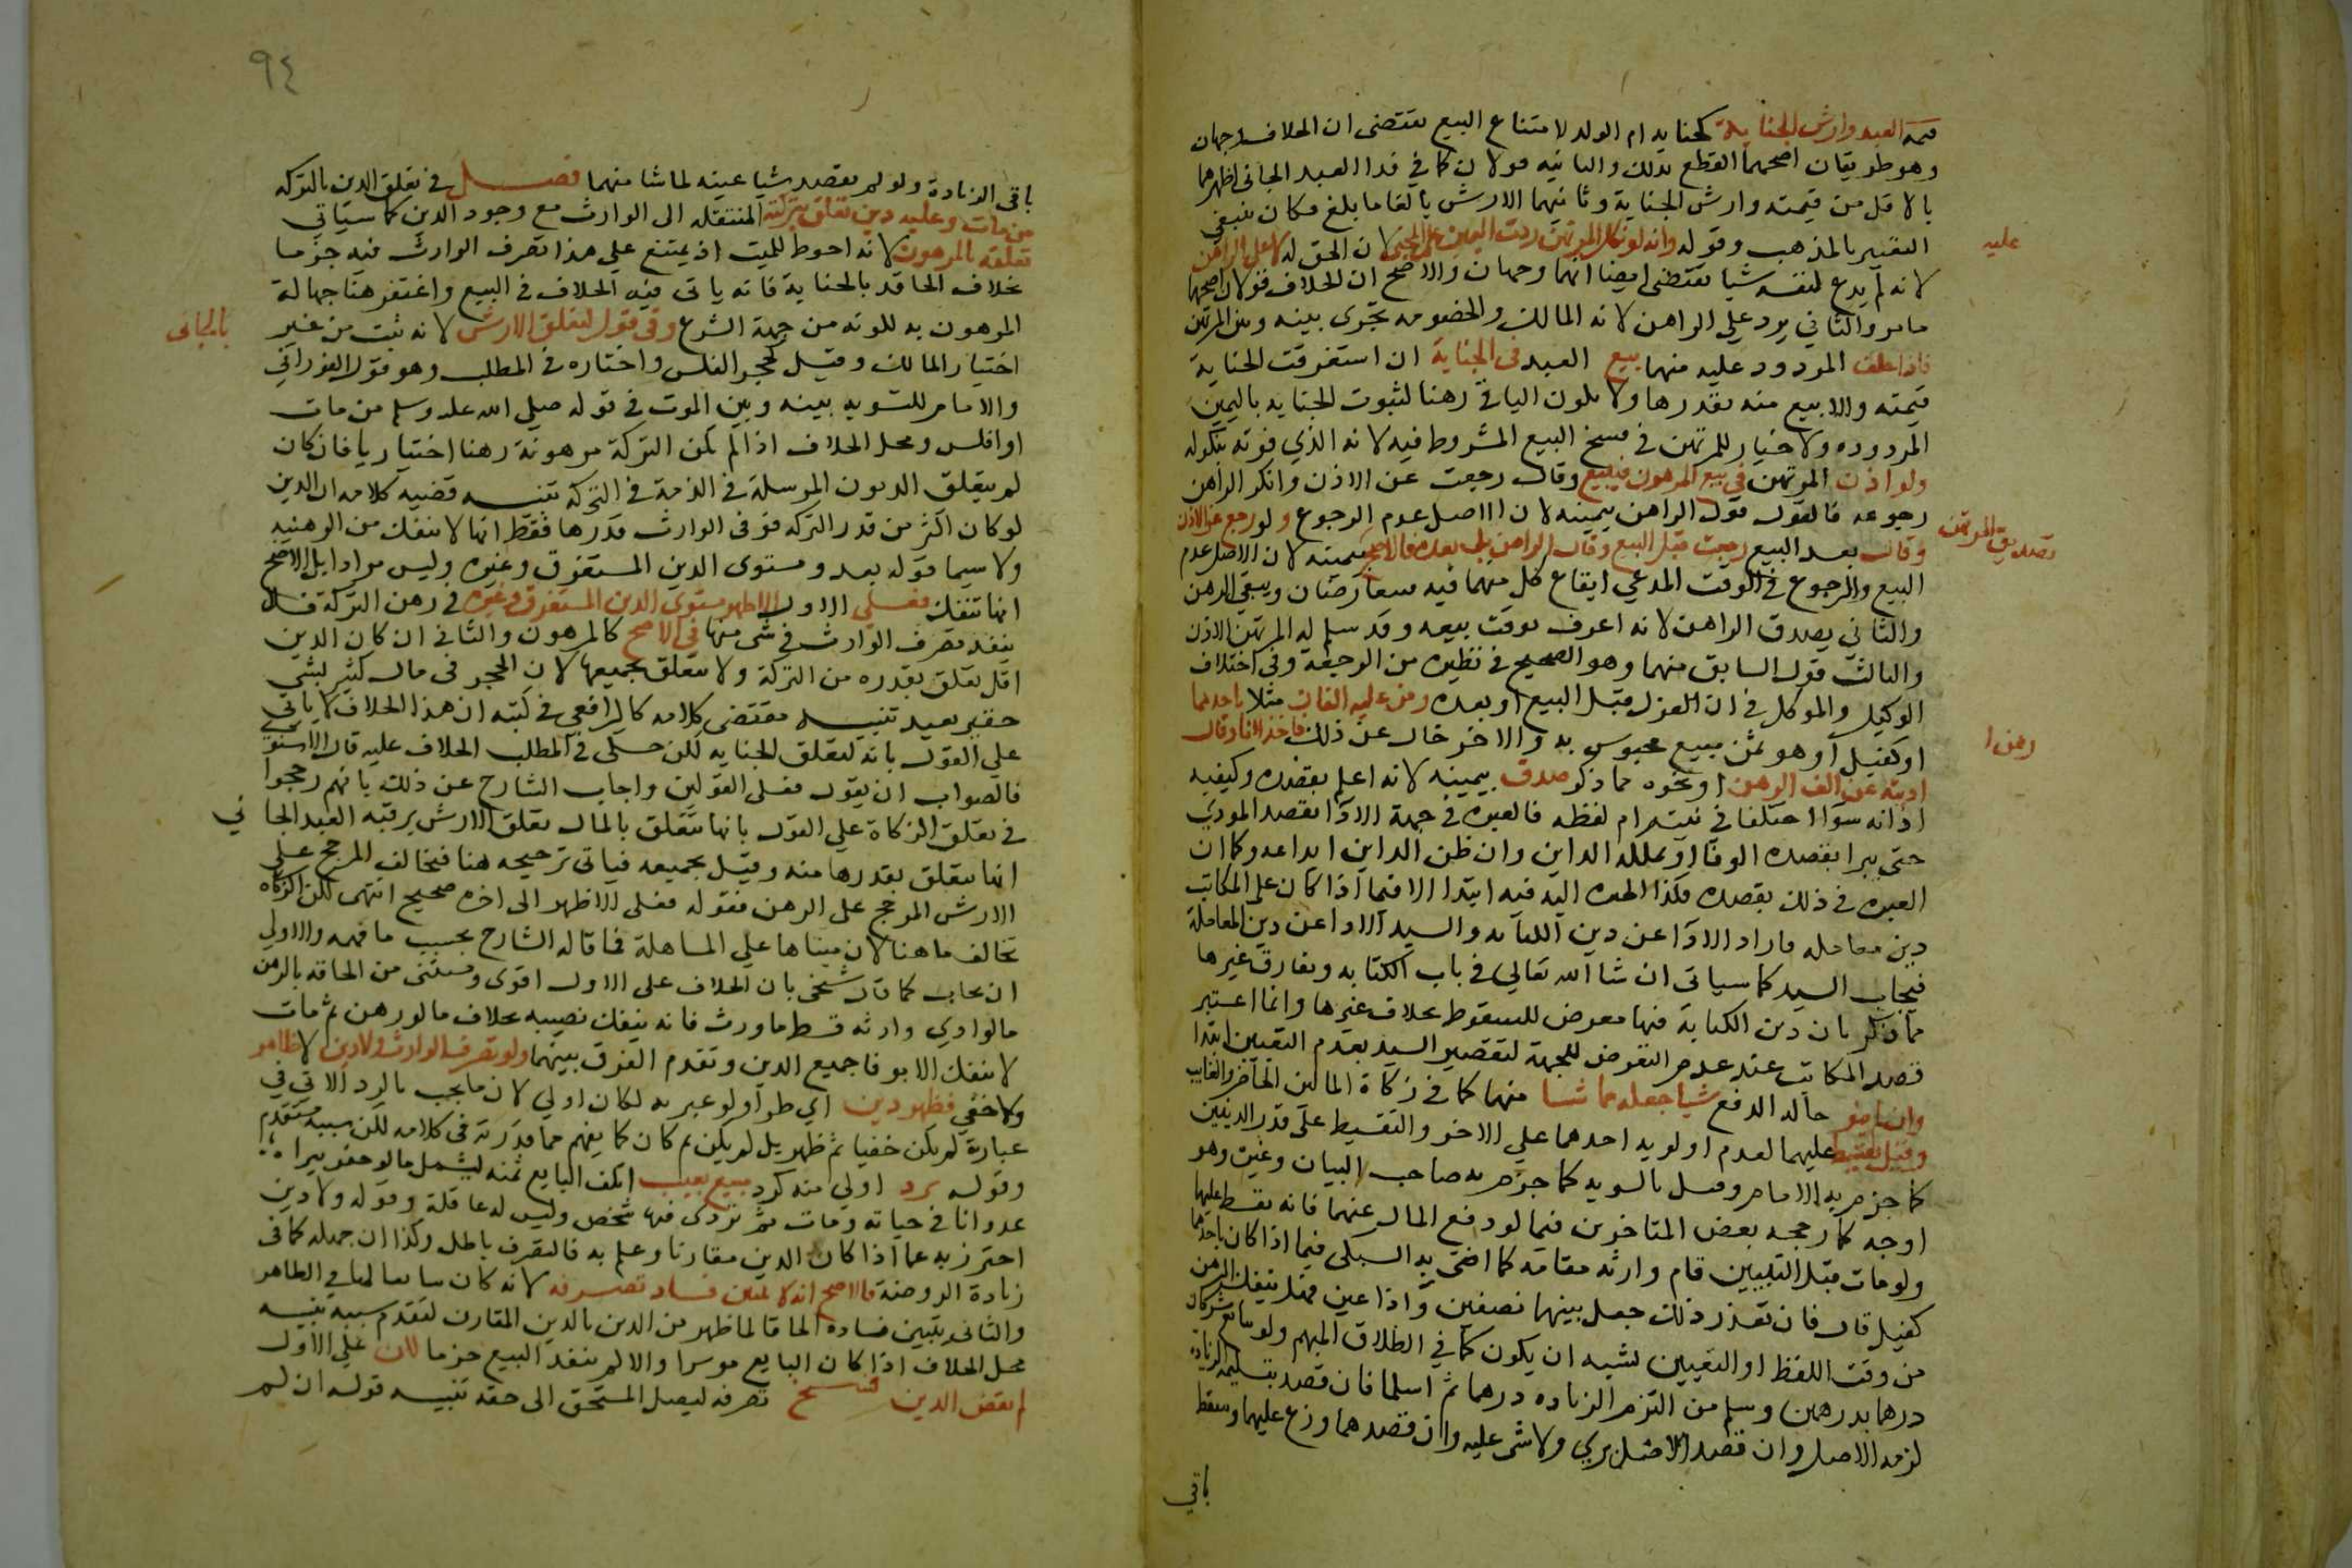 قيمة العبد وارش الجناية كجناية ام الولد لامتناع البيع يقتضى ان الخلاف وجهان
وهو طريقان اصحهما القطع بذلك والثانيه قولان كما في فدا العبد الجاني اظهرهما
بالاقل من قيمته وارش الجناية وثانيهما الارش بالغا ما بلغ فكان ينبغي
التعبير بالمذهب وقوله وانه لو نكل المرتهن ردت اليمين على المجني لان الحق له لا على الراهن
عليه
لانه لم يدع لنفسه شيا يقتضى ايضا انهما وجهان والاصح ان الخلاف قولان اصحهما
ما مر والثاني يرد على الراهن لانه المالك والخصومه تجرى بينه وبين المرتهن
فاذا حلف المردود عليه منهما بيع العبد فى الجناية ان استغرقت الجناية
قيمته والا بيع منه بقدرها ولا يكون الباقي رهنا لثبوت الجنايه باليمين
المردوده ولا خيار للمرتهن في فسخ البيع المشروط فيه لانه الذي فوته بنكوله
ولو اذن المرتهن في بيع المرهون فبيع وقال رجعت عن الاذن وانكر الراهن
رجوعه فالقول قول الراهن بيمينه لان الاصل عدم الرجوع ولو رجع عن الاذن
تصديق المرتهن
وقال بعد البيع رجعت قبل البيع وقال الراهن بل بعده فالاصح بيمينه لان الاصل عدم
البيع والرجوع في الوقت المدعي ايقاع كل منهما فيه فيتعارضان ويبقى الرهن
والثاني يصدق الراهن لانه اعرف بوقت بيعه وقد سلم له المرتهن الاذن
والثالث قول السابق منهما وهو الصحيح في نظيره من الرجعة وفى اختلاف
الوكيل والموكل في ان العزل قبل البيع او بعده ومن عليه الفان مثلا باحدهما
رهن ا
او كفيل او هو ثمن مبيع محبوس به والاخر خال عن ذلك فاخذ الفا وقال
اديته عن الف الرهن او نحوه مما ذكر صدق بيمينه لانه اعلم بقصده وكيفيه
اذانه سوا اختلفا في نيته ام لفظه فالعبره في جهة الادا بقصد المودي
حتى يبرا بقصده الوفا او يملكه الداين وان ظن الداين ايداعه وكما ان
العبره في ذلك بقصده فكذا الخيره اليه فيه ابتدا الا فيما اذا كان على المكاتب
دين معامله فاراد الادا عن دين الكتابه والسيد الادا عن دين المعاملة
فيجاب السيد كما سياتى ان شا الله تعالى في باب الكتابه وتفارق غيرها
مما ذكر بان دين الكتابة فيها معرض للسقوط بخلاف غيرها وانما اعتبر
قصد المكاتب عند عدم التعرض للجهة لتقصير السيد بعدم التعيين ابتدا
وان لم ينو حاله الدفع شيا جعله عما شا منهما كما في زكاة المالين الحاضر والغايب
وقيل يقسط عليهما لعدم اولويه احدهما على الاخر والتقسيط على قدر الدينين
كما جزم به الامام وقيل بالسويه كما جزم به صاحب البيان وغيره وهو
اوجه كما رجحه بعض المتاخرين فيما لو دفع المال عنهما فانه يقسط عليهما
ولو مات قبل التعيين قام وارثه مقامه كما افتى به السبكى فيما اذا كان باحدهما
كفيل قال فان تعذر ذلك جعل بينهما نصفين واذا عين فهل ينفك الرهن
من وقت اللفظ او التعيين يشبه ان يكون كما في الطلاق المبهم ولو تبايع مشركان
درهما بدرهمين وسلم من التزم الزياده درهما ثم اسلما فان قصد بتسليمه الزيادة
لزمه الاصل وان قصد الاصل بري ولا شى عليه وان قصدهما وزع عليهما وسقط
باقي
٩٤
باقى الزيادة ولو لم يقصد شيا عينه لما شا منهما فصل في تعلق الدين بالتركه
من مات وعليه دين تعلق بتركته المنتقله الى الوارث مع وجود الدين كما سياتي
تعلقه بالمرهون لانه احوط للميت اذ يمتنع على هذا تصرف الوارث فيه جزما
بخلاف الحاقه بالجناية فانه ياتى فيه الخلاف في البيع واغتفر هنا جهالة
المرهون به لكونه من جهة الشرع وفى قول كتعلق الارش لانه ثبت من غير
بالجانى
اختيار المالك وقيل كحجر الفلس واختاره في المطلب وهو قول الفوراني
والامام للتسويه بينه وبين الموت في قوله صلى الله عليه وسلم من مات
او افلس ومحل الخلاف اذا لم تكن التركة مرهونة رهنا اختياريا فان كان
لم يتعلق الديون المرسلة في الذمة في التركة تنبيه قضيه كلامه ان الدين
لو كان اكثر من قدر التركه فوفى الوارث قدرها فقط انها لا تنفك من الرهنيه
ولا سيما قوله بعد ومستوى الدين المستغرق وغيره وليس مرادا بل الاصح
انها تنفك فعلى الاول الاظهر يستوي الدين المستغرق وغيره في رهن التركة فلا
ينفذ تصرف الوارث في شى منها في الاصح كالمرهون والثاني ان كان الدين
اقل تعلق بقدره من التركة ولا يتعلق بجميعها لان الحجر في مال كثير بشي
حقير بعيد تنبيه مقتضى كلامه كالرافعي في كتبه ان هذا الخلاف لا ياتي
على القول بانه كتعلق الجنايه لكن حكى في المطلب الخلاف عليه قال الاسنوي
فالصواب ان يقول فعلى القولين واجاب الشارح عن ذلك بانهم رجحوا
في تعلق الزكاة على القول بانها تتعلق بالمال تعلق الارش برقبه العبد الجاني
انها تتعلق بقدرها منه وقيل بجميعه فياتى ترجيحه هنا فيخالف المرجح على
الارش المرجح على الرهن فقوله فعلى الاظهر الى اخره صحيح انتهى لكن الزكاه
تخالف ما هنا لان مبناها على المساهلة فما قاله الشارح بحسب ما فهمه والاولى
ان يجاب كما قال شيخى بان الخلاف على الاول اقوى ويستثنى من الحاقه بالرهن
ما لو ادى وارثه قسط ما ورث فانه ينفك نصيبه بخلاف ما لو رهن ثم مات
لا ينفك الا بوفا جميع الدين وتقدم الفرق بينهما ولو تصرف الوارث ولا دين لاظاهر
ولا خفي فظهر دين اي طرا ولو عبر به لكان اولى لان ما يجب بالرد الاتي في
عبارة لم يكن خفيا ثم ظهر بل لم يكن ثم كان كما يفهم مما قدرته في كلامه لكن سببه متقدم
وقوله برد اولى منه كرد مبيع بعيب اتلف البايع ثمنه ليشمل ما لو حفر بيرا
عدوانا في حياته ومات ثم تردى فيها شخص وليس له عاقلة وقوله ولا دين
احترز به عما اذا كان الدين مقارنا وعلم به فالتصرف باطل وكذا ان جهله كما في
زيادة الروضة فالاصح انه لا يتبين فساد تصرفه لانه كان سايغا له في الظاهر
والثاني يتبين فساده الحاقا لما ظهر من الدين بالدين المقارن لتقدم سببه تنبيه
محل الخلاف اذا كان البايع موسرا والا لم ينفذ البيع جزما لكن على الاول
لم يقض الدين فسخ تصرفه ليصل المستحق الى حقه تنبيه قوله ان لم